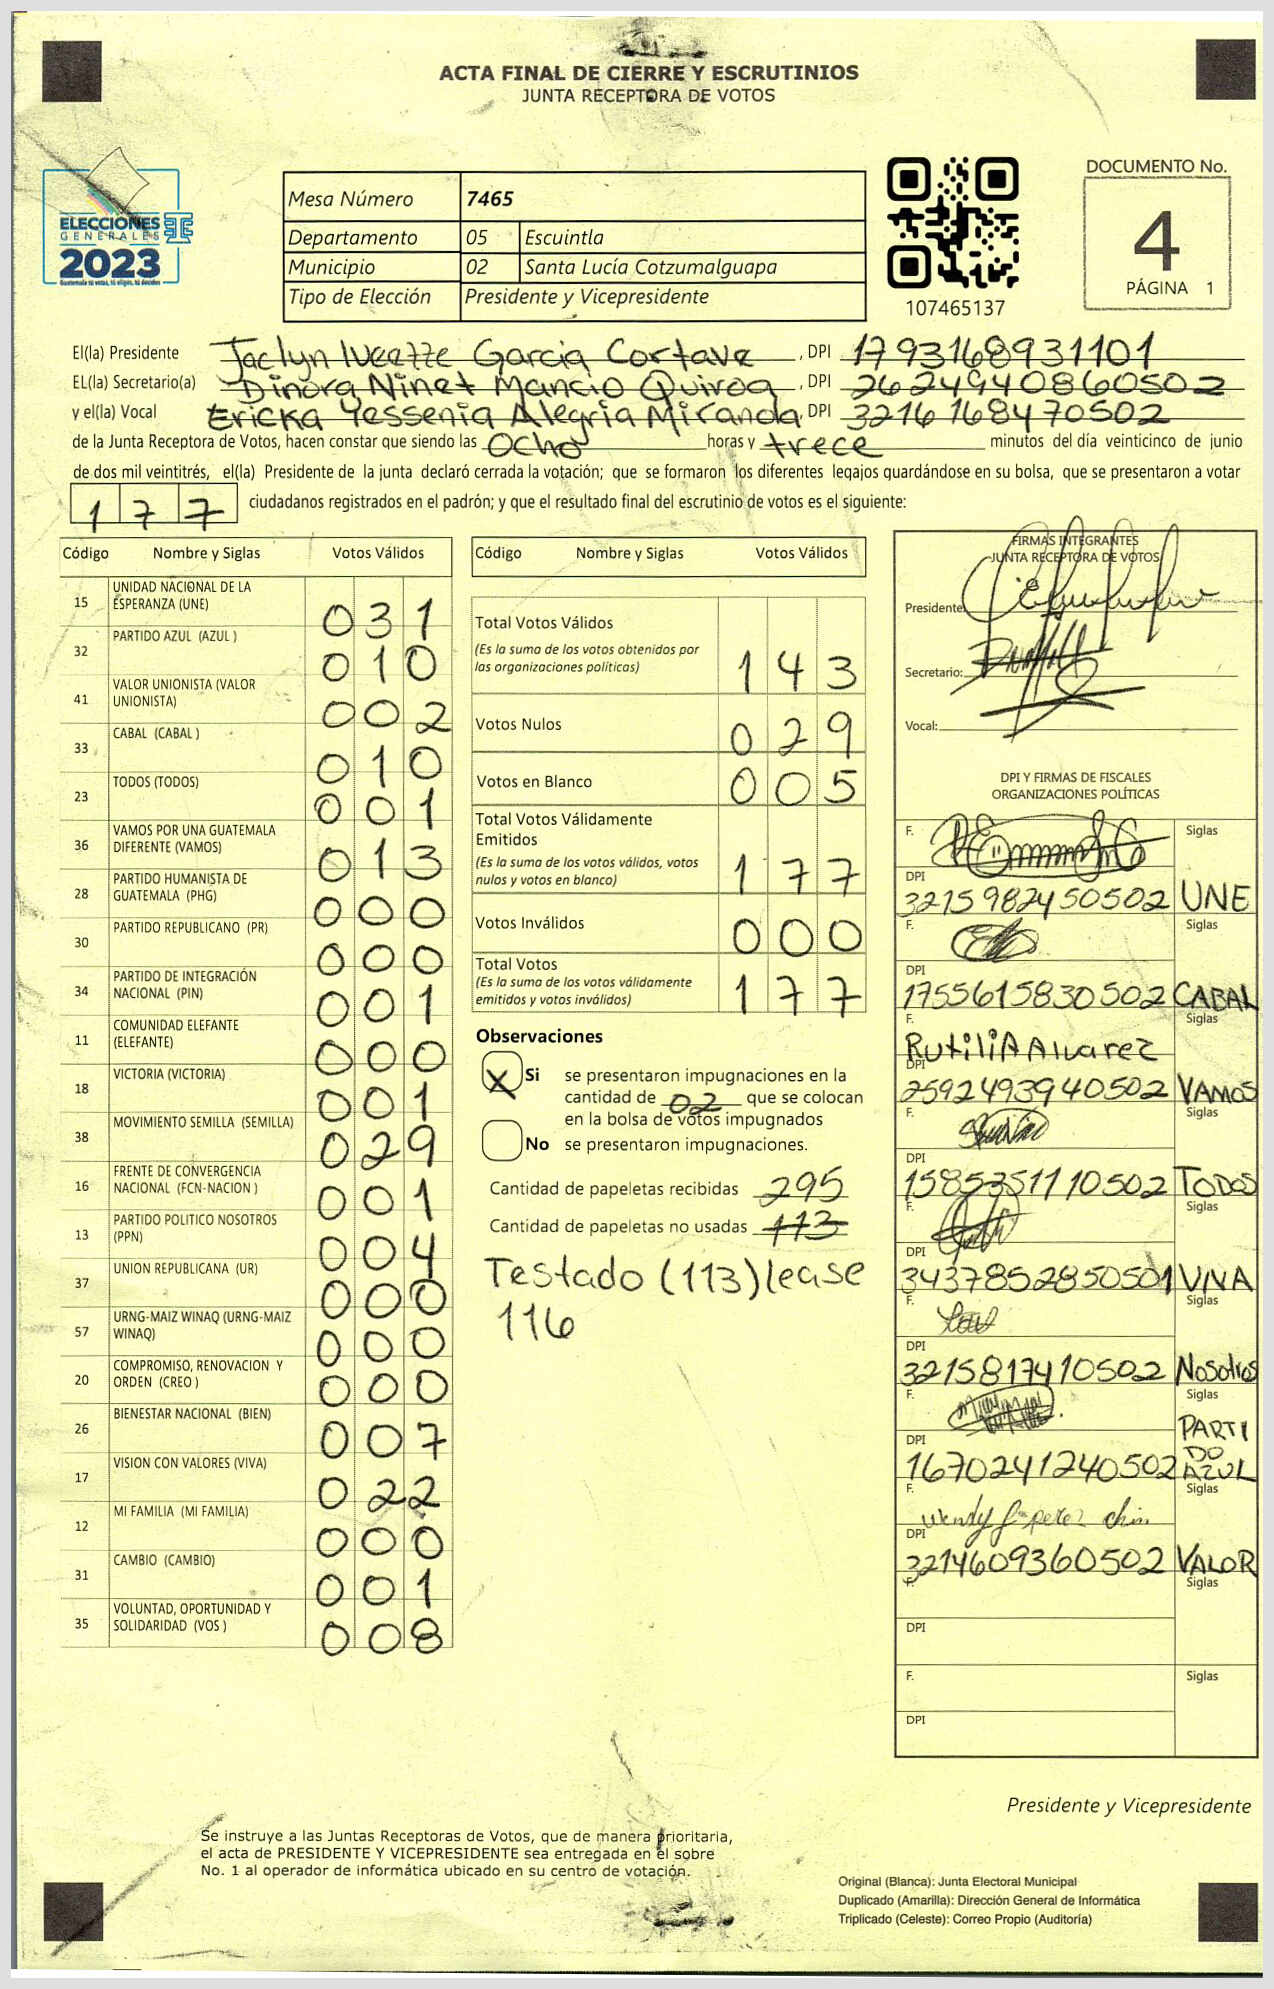 ACTA FINAL DE CIERRE Y ESCRUTINIOS
JUNTA RECEPTORA DE VOTOS
ELECCIONES
GENERALES
2023
Guatemala tú votas, tú eliges, tú decides
Mesa Número 7465
Departamento 05 Escuintla
Municipio 02 Santa Lucía Cotzumalguapa
Tipo de Elección Presidente y Vicepresidente
107465137
DOCUMENTO No.
4
PÁGINA 1
El(la) Presidente Jaclyn Iveette Garcia Cortave, DPI 1793168931101
EL(la) Secretario(a) Dinora Ninet Mancio Quiroa, DPI 2624944080502
y el(la) Vocal Ericka Yessenia Alegria Miranda, DPI 3216168470502
de la Junta Receptora de Votos, hacen constar que siendo las Ocho horas y trece minutos del día veinticinco de junio
de dos mil veintitrés, el(la) Presidente de la junta declaró cerrada la votación; que se formaron los diferentes legajos guardándose en su bolsa, que se presentaron a votar
177 ciudadanos registrados en el padrón; y que el resultado final del escrutinio de votos es el siguiente:
Código Nombre y Siglas Votos Válidos
15 UNIDAD NACIONAL DE LA ESPERANZA (UNE) 031
32 PARTIDO AZUL (AZUL ) 010
41 VALOR UNIONISTA (VALOR UNIONISTA) 002
33 CABAL (CABAL ) 010
23 TODOS (TODOS) 001
36 VAMOS POR UNA GUATEMALA DIFERENTE (VAMOS) 013
28 PARTIDO HUMANISTA DE GUATEMALA (PHG) 000
30 PARTIDO REPUBLICANO (PR) 000
34 PARTIDO DE INTEGRACIÓN NACIONAL (PIN) 001
11 COMUNIDAD ELEFANTE (ELEFANTE) 000
18 VICTORIA (VICTORIA) 001
38 MOVIMIENTO SEMILLA (SEMILLA) 029
16 FRENTE DE CONVERGENCIA NACIONAL (FCN-NACION ) 001
13 PARTIDO POLITICO NOSOTROS (PPN) 004
37 UNION REPUBLICANA (UR) 000
57 URNG-MAIZ WINAQ (URNG-MAIZ WINAQ) 000
20 COMPROMISO, RENOVACION Y ORDEN (CREO ) 000
26 BIENESTAR NACIONAL (BIEN) 007
17 VISION CON VALORES (VIVA) 022
12 MI FAMILIA (MI FAMILIA) 000
31 CAMBIO (CAMBIO) 001
35 VOLUNTAD, OPORTUNIDAD Y SOLIDARIDAD (VOS ) 008
Código Nombre y Siglas Votos Válidos
Total Votos Válidos
(Es la suma de los votos obtenidos por
las organizaciones políticas) 143
Votos Nulos 029
Votos en Blanco 005
Total Votos Válidamente
Emitidos
(Es la suma de los votos válidos, votos
nulos y votos en blanco) 177
Votos Inválidos 000
Total Votos
(Es la suma de los votos válidamente
emitidos y votos inválidos) 177
Observaciones
X Si se presentaron impugnaciones en la
cantidad de 02 que se colocan
en la bolsa de votos impugnados
No se presentaron impugnaciones.
Cantidad de papeletas recibidas 295
Cantidad de papeletas no usadas 113
Testado (113) lease
116
FIRMAS INTEGRANTES
JUNTA RECEPTORA DE VOTOS
Presidente:
Secretario:
Vocal:
DPI Y FIRMAS DE FISCALES
ORGANIZACIONES POLÍTICAS
F. Siglas
DPI
3215982450502 UNE
F. Siglas
DPI
1755615830502 CABAL
F. Siglas
Rutilia Alvarez
DPI
2592493940502 VAMOS
F. Siglas
DPI
1585351110502 TODOS
F. Siglas
DPI
3437852850501 VIVA
F. Siglas
DPI
3215817410502 Nosotros
F. Siglas
DPI
1670241240502 PARTIDO AZUL
F. Siglas
Wendy
DPI
3214609360502 VALOR
F. Siglas
DPI
F. Siglas
DPI
Presidente y Vicepresidente
Se instruye a las Juntas Receptoras de Votos, que de manera prioritaria,
el acta de PRESIDENTE Y VICEPRESIDENTE sea entregada en el sobre
No. 1 al operador de informática ubicado en su centro de votación.
Original (Blanca): Junta Electoral Municipal
Duplicado (Amarilla): Dirección General de Informática
Triplicado (Celeste): Correo Propio (Auditoría)